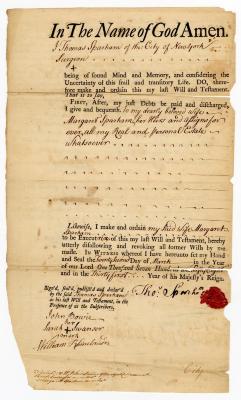 In The Name of God Amen.
I Thomas Sparham of the City of New york
Surgeon
being of sound Mind and Memory, and considering the
Uncertainty of this frail and transitory Life, DO, there-
fore make and ordain this my last Will and Testament.
That is to say,
FIRST, After my just Debts be paid and discharged,
I give and bequeath to my dearly beloved wife
Margaret Sparham, her Heirs and Assigns for
ever, all my Real and Personal Estate
whatsoever
Likewise, I make and ordain my said Wife Margaret
Sparham
to be Execut of this my last Will and Testament, hereby
utterly disallowing and revoking all former Wills by me
made. In WITNESS whereof I have hereunto set my Hand
and Seal the Day of March in the Year
of our Lord One Thousand Seven Hundred
and in the Year of his Majesty's Reign.
Sign'd, seal'd, publish'd and declar'd
by the said Thomas Sparham
as his last Will and Testament, in the
Presence of us the Subscribers,
Tho Sparham
John Bowie
her
Sarah + Swanser
mark
William
City